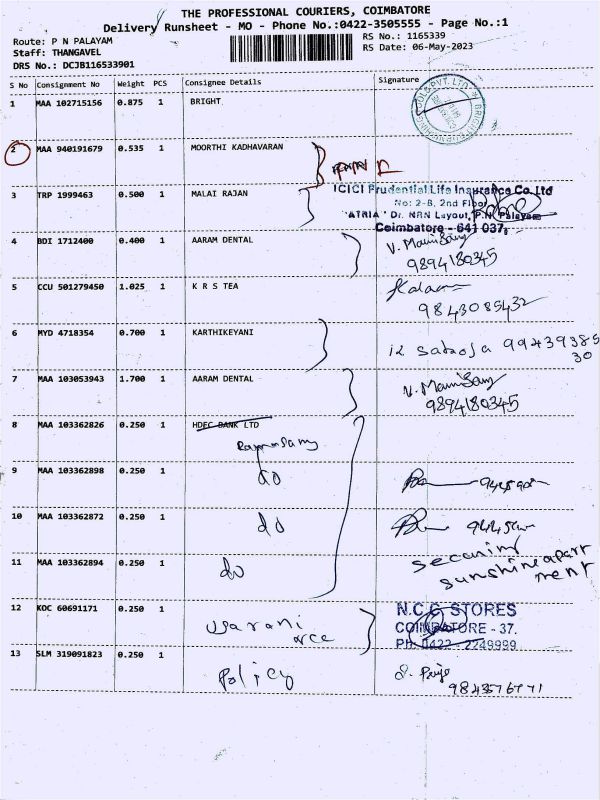 THE PROFESSIONAL COURIERS, COIMBATORE
Delivery Runsheet - MO - Phone No.:0422-3505555 - Page No.:1
Route: P N PALAYAM
Staff: THANGAVEL
DRS No.: DCJB116533901
RS No.: 1165339
RS Date: 06-May-2023
S No Consignment No Weight PCS Consignee Details Signature
1 MAA 102715156 0.875 1 BRIGHT
2 MAA 940191679 0.535 1 MOORTHI KADHAVARAN
3 TRP 1999463 0.500 1 MALAI RAJAN
ICICI Prudential Life Insurance Co. Ltd
No: 2-B, 2nd Floor
"ATRIA" Dr. NRN Layout, P.N. Palayam
Coimbatore - 641 037.
4 BDI 1712400 0.400 1 AARAM DENTAL
9894180345
5 CCU 501279450 1.025 1 K R S TEA
9843085432
6 MYD 4718354 0.700 1 KARTHIKEYANI
99439385
30
7 MAA 103053943 1.700 1 AARAM DENTAL
9894180345
8 MAA 103362826 0.250 1 HDFC BANK LTD
9 MAA 103362898 0.250 1 do
10 MAA 103362872 0.250 1 do
11 MAA 103362894 0.250 1 do
sunshine apart
ment
12 KOC 60691171 0.250 1
N.C.G STORES
COIMBATORE - 37.
PH: 0422 - 2249999
13 SLM 319091823 0.250 1 Policy